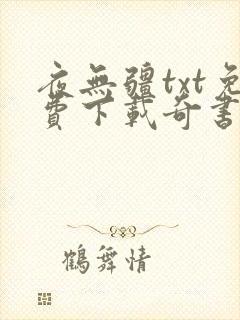 夜無疆txt免
費下載奇書
鶴舞情